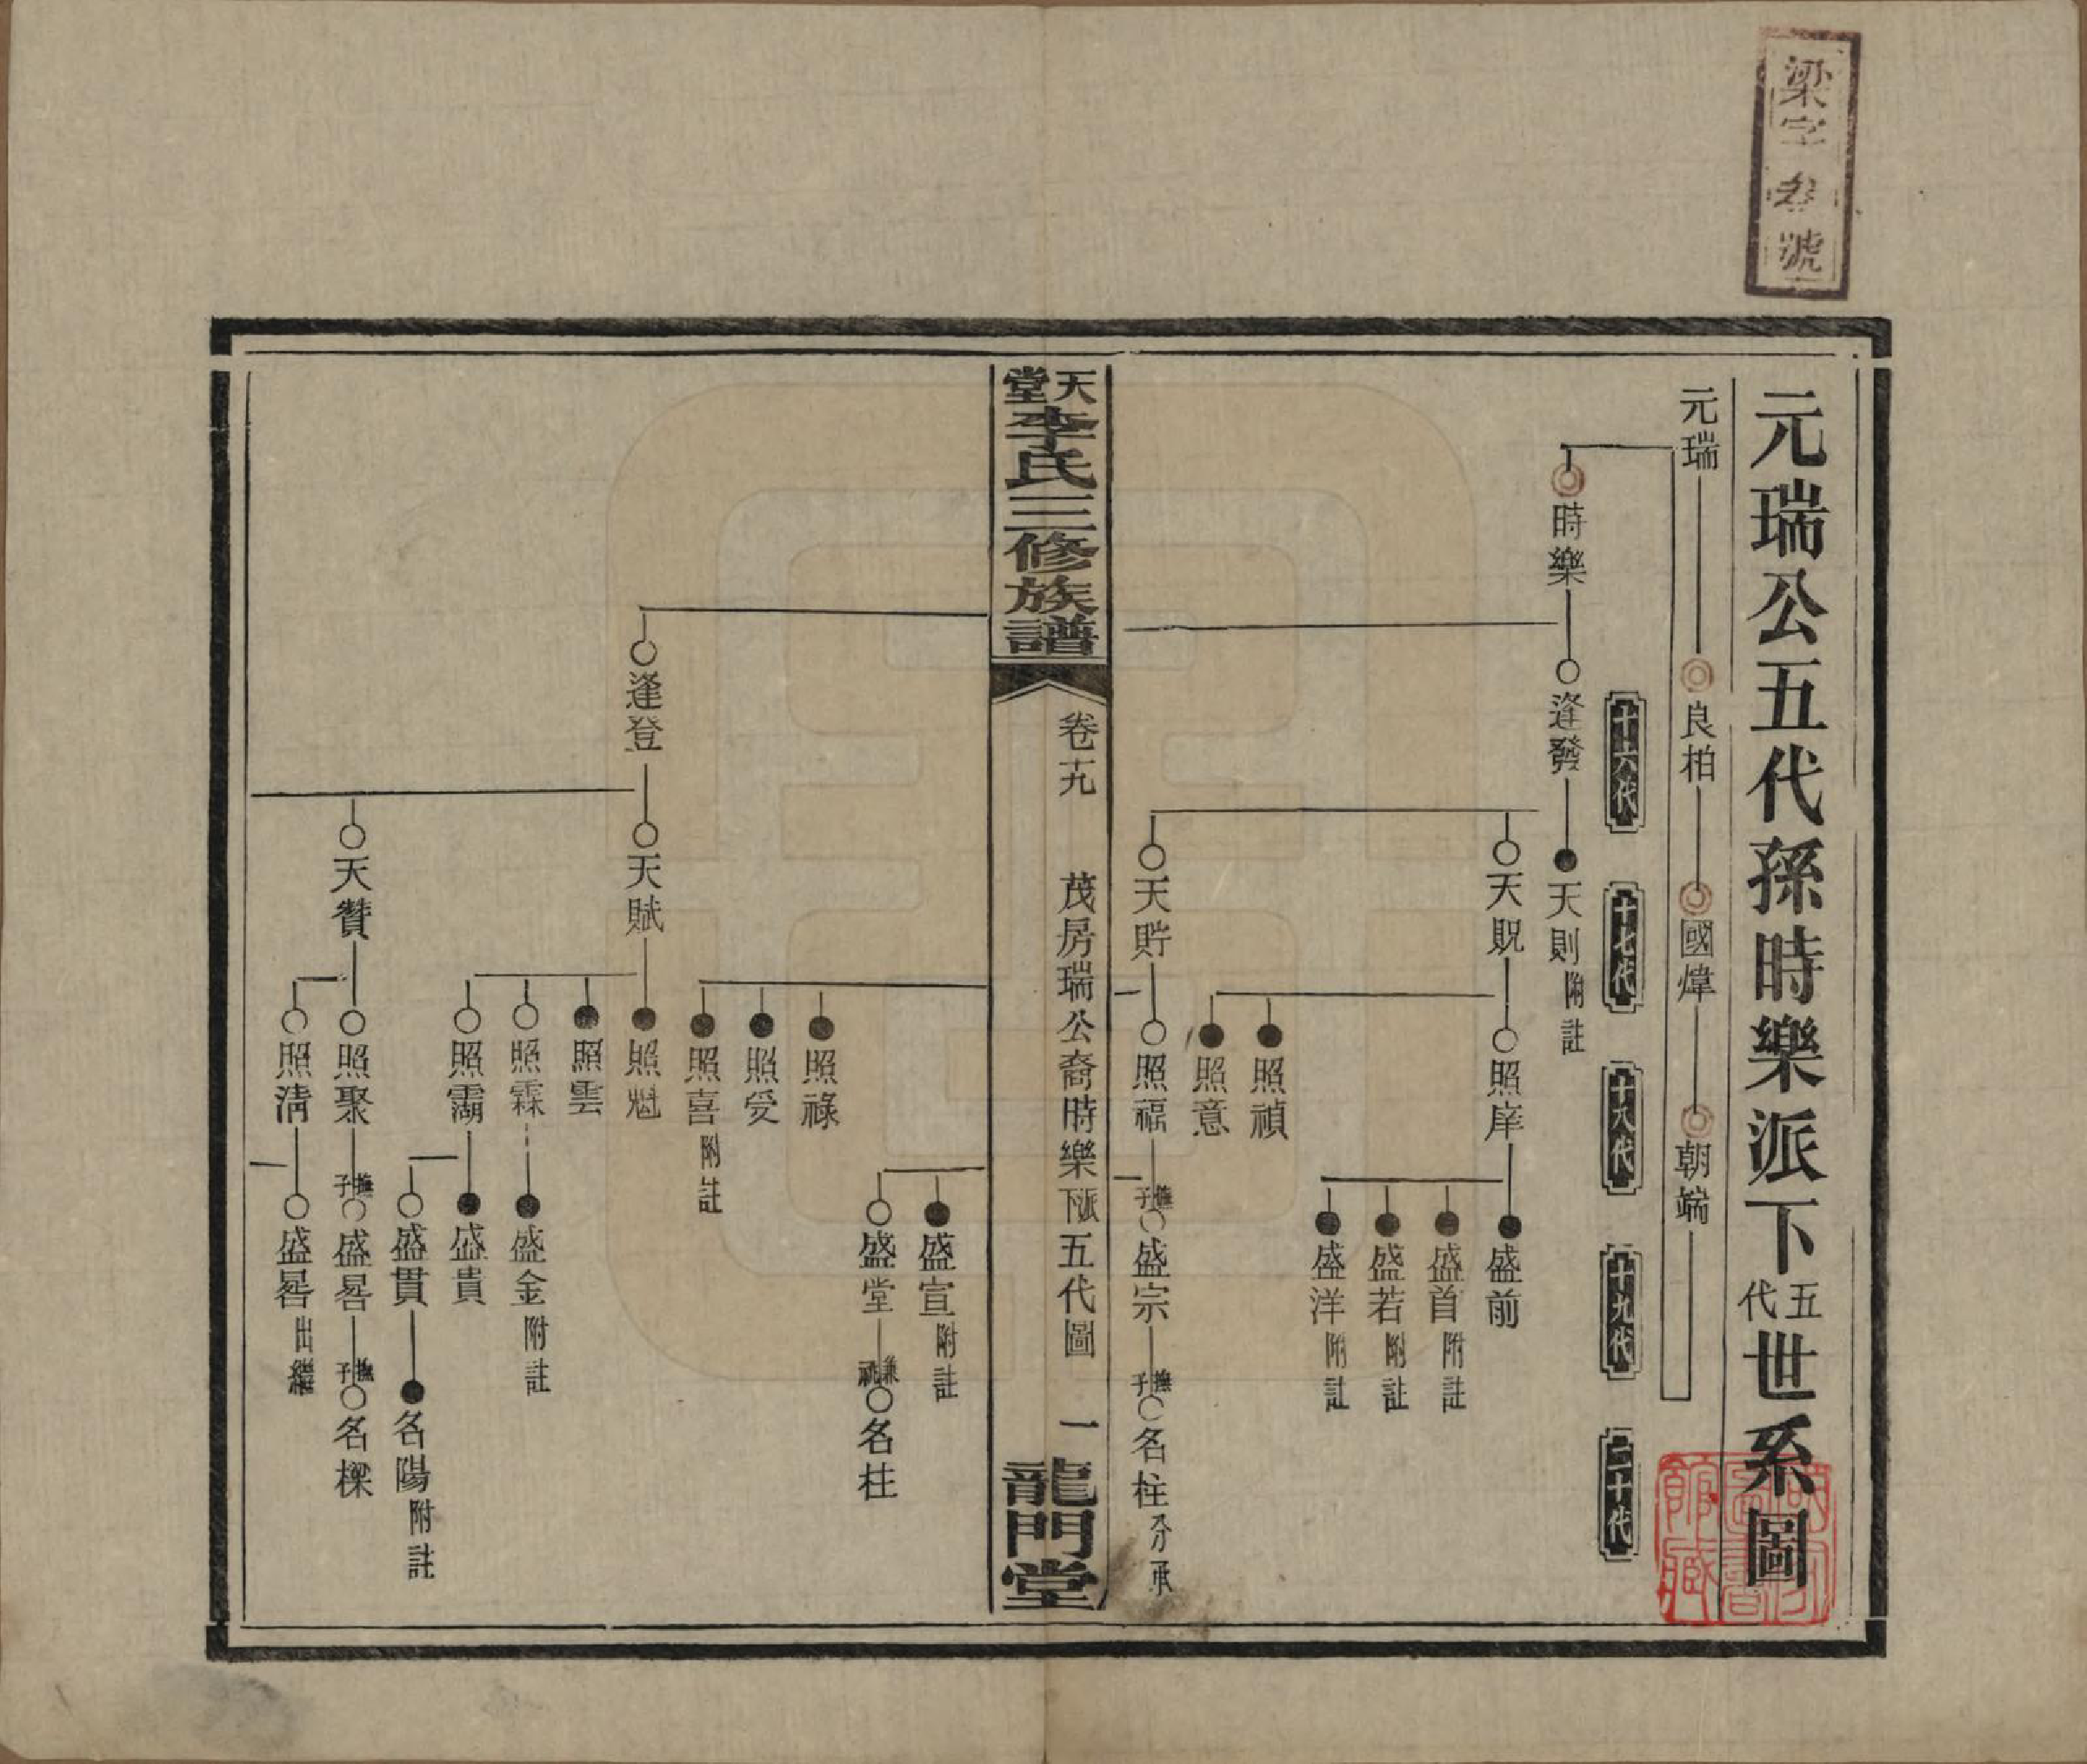 梁字叁號
元瑞公五代孫時樂派下五代世系圖
元瑞
良柏
國煒
朝端
十六代
十七代
十八代
十九代
二十代
時樂
逢發
天則附註
天貺
照庠
盛前
盛首附註
盛若附註
盛洋附註
照禎
照意
天貯
照福
撫子
盛宗
撫子
名柱分承
天堂李氏三修族譜
卷十九
茂房瑞公裔時樂派下五代圖
一
龍門堂
盛宣附註
盛堂
兼祧
名柱
照祿
照受
照喜附註
逢登
天賦
照魁
照雲
照霖
盛金附註
照霸
盛貴
盛貫
名陽附註
天贊
照聚
撫子
盛晷
撫子
名樑
照清
盛晷出繼